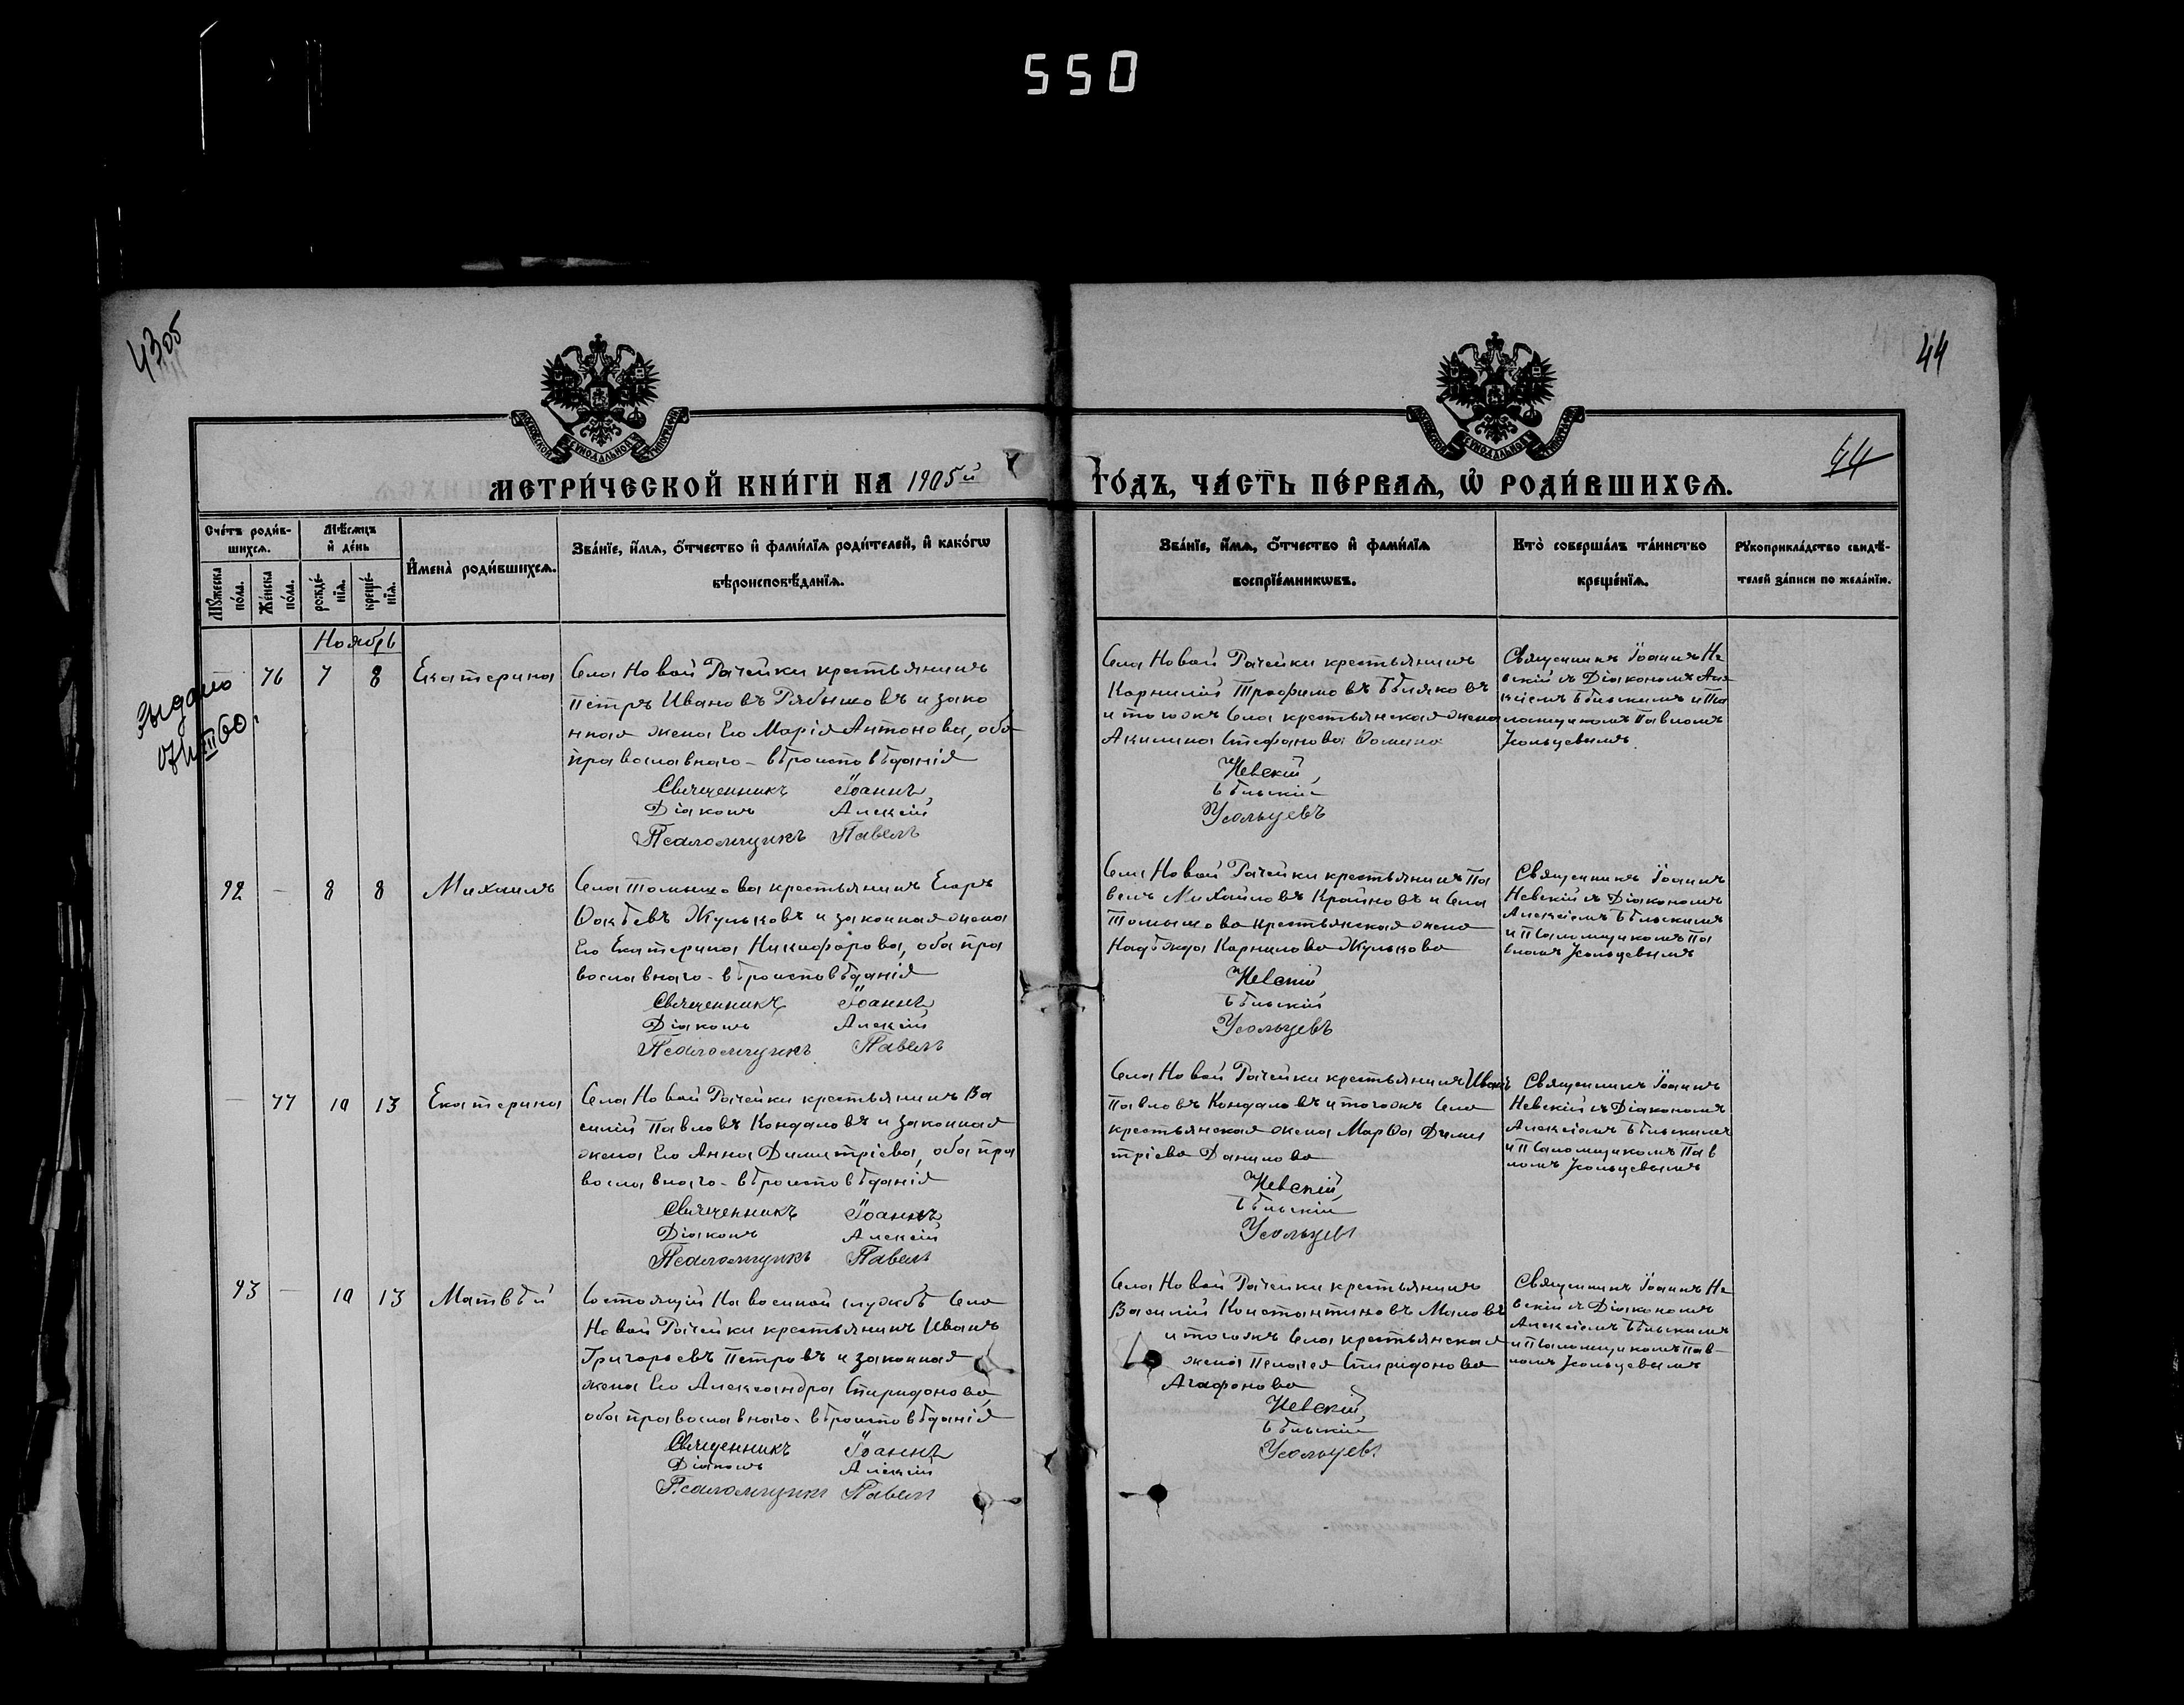 550
4305
44
44
МЕТРИ́ЧЕСКОЙ КНИ́ГИ НА 1905й
ГО́ДЪ, ЧА́СТЬ ПЕ́РВАѦ, Ѡ҆ РОДИ́ВШИХСѦ.
Сче́тъ роди́в-
шихсѧ.
Мѣ́сѧцъ
и҆ де́нь
Му́жеска по́ла.
Же́нска по́ла.
рожде́-
нїѧ.
креще́-
нїѧ.
И҆мена̀ роди́вшихсѧ.
Зва́нїе, и҆́мѧ, ѻ҆́тчество и҆ фами́лїѧ роди́телей, и҆ како́гѡ
вѣроисповѣ́данїѧ.
Зва́нїе, и҆́мѧ, ѻ҆́тчество и҆ фами́лїѧ
воспрїе́мникѡвъ.
Кто̀ соверша́лъ та́инство
креще́нїѧ.
Рꙋкоприкла́дство свидѣ́-
телей за́писи по жела́нїю.
Ноябрь
Выдано
— 76 7 8 Екатерина
Села Новой Рачейки крестьянинъ
Петръ Ивановъ Рябышовъ и зако
нная жена Его Марія Антонова, оба
православнаго-вѣроисповѣданія
Священникъ Іоаннъ
Діаконъ Алексій
Псаломщикъ Павелъ
Села Новой Рачейки крестьянинъ
Карнилій Трофимовъ Бѣляковъ
и тогожъ Села крестьянская жена
Акилина Стефанова Фомина
Невскій
Бѣльскій
Усольцевъ
Священникъ Іоаннъ Не
вскій съ Діакономъ Але
ксіемъ Бѣльскимъ и Пса
ломщикомъ Павломъ
Усольцевымъ.
92 — 8 8 Михаилъ
Села Томышова крестьянинъ Егоръ
Фокѣевъ Жульковъ и законная жена
Его Екатерина Никифорова, оба пра
вославнаго-вѣроисповѣданія
Священникъ Іоаннъ
Діаконъ Алексій
Псаломщикъ Павелъ
Села Новой Рачейки крестьянинъ Па
велъ Михайловъ Крайновъ и Села
Томышова крестьянская жена
Надѣжда Карнилова Жулькова
Невскій
Бѣльскій
Усольцевъ
Священникъ Іоаннъ
Невскій съ Діакономъ
Алексіемъ Бѣльскимъ
и Псаломщикомъ Па
вломъ Усольцевымъ
— 77 10 13 Екатерина
Села Новой Рачейки крестьянинъ Ва
силій Павловъ Кондаловъ и законная
жена Его Анна Димитріева, оба пра
вославнаго-вѣроисповѣданія
Священникъ Іоаннъ
Діаконъ Алексій
Псаломщикъ Павелъ
Села Новой Рачейки крестьянинъ Иванъ
Павловъ Кондаловъ и тогожъ Села
крестьянская жена Марѳа Дими
тріева Данилова
Невскій
Бѣльскій
Усольцевъ
Священникъ Іоаннъ
Невскій съ Діакономъ
Алексіемъ Бѣльскимъ
и Псаломщикомъ Пав
ломъ Усольцевымъ
93 — 10 13 Матвѣй
Состоящій На военной службѣ Села
Новой Рачейки крестьянинъ Иванъ
Григорьевъ Петровъ и законная
жена Его Александра Спиридонова,
оба православнаго-вѣроисповѣданія
Священникъ Іоаннъ
Діаконъ Алексій
Псаломщикъ Павелъ
Села Новой Рачейки крестьянинъ
Василій Константиновъ Маловъ
и тогожъ Села крестьянская
жена Пелагея Спиридонова
Агафонова
Невскій
Бѣльскій
Усольцевъ
Священникъ Іоаннъ Не
вскій съ Діакономъ
Алексіемъ Бѣльскимъ
и Псаломщикомъ Пав-
ломъ Усольцевымъ